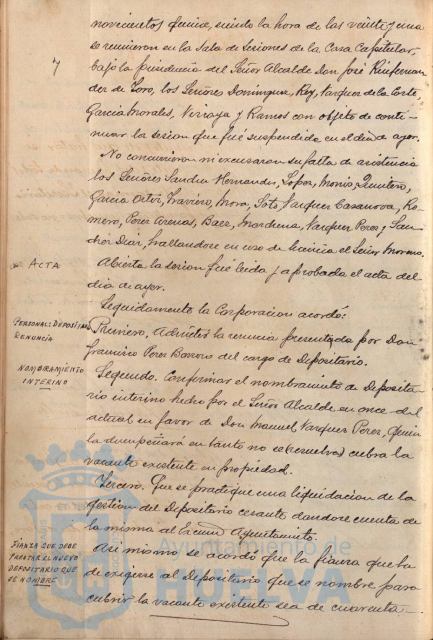 novecientos quince, siendo la hora de las veinte y una
se reunieron en la Sala de Sesiones de la Casa Capitular,
7
bajo la presidencia del Señor Alcalde Don José
de Toro, los Señores Dominguez, Rey, Vazquez de la Corte
Garcia Morales, Vizcaya y Ramos con objeto de conti-
nuar la sesion que fué suspendida en el dia de ayer.
No concurrieron ni escusaron su falta de asistencia
los Señores Sanchez Hernandez, Lopez, Monis, Quintero,
Garcia Ortiz, Mora, Soto, Vazquez Casanova, Ro-
mero, Perez Arenas, Baez, Marchena, Vazquez Perez y San-
chez Diaz, hallandose en uso de licencia el Señor Moreno.
ACTA
Abierta la sesion fué leida y aprobada el acta del
dia de ayer.
Seguidamente la Corporacion acordó:
PERSONAL: DEPOSITARIO
RENUNCIA
Primero. Admitir la renuncia presentada por Don
Francisco Perez Barroso del cargo de Depositario.
NOMBRAMIENTO
INTERINO
Segundo. Confirmar el nombramiento de Deposita-
rio interino hecho por el Señor Alcalde en once del
actual en favor de Don Manuel Vazquez Perez, quien
la desempeñará en tanto no se (resuelva) cubra la
vacante existente en propiedad.
Tercero. Que se practique una liquidacion de la
gestion del Depositario cesante dandose cuenta de
la misma al Excmo Ayuntamiento.
FIANZA QUE DEBE
PRESTAR EL NUEVO
DEPOSITARIO QUE
SE NOMBRE
Asi mismo se acordó que la fianza que ha
de exigirse al Depositario que se nombre para
cubrir la vacante existente sea de cuarenta
Ayuntamiento de
HUELVA